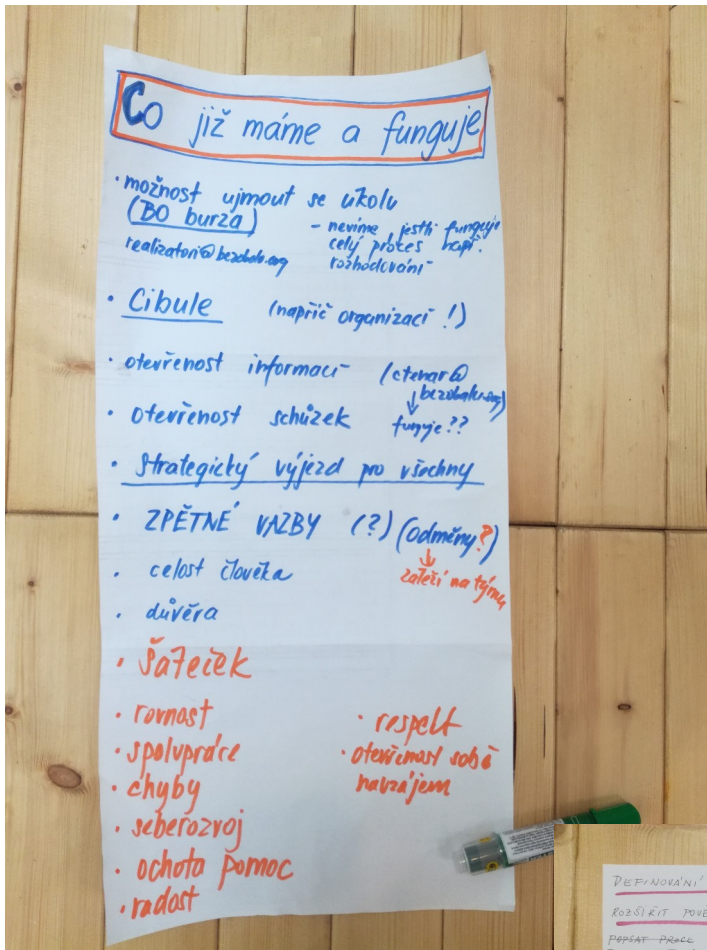 Co již máme a funguje
• možnost ujmout se úkolu
(BO burza)
realizatori@bezobalu.org
- nevíme jestli funguje
celý proces např.
rozhodování
• Cibule (napříč organizací !)
• otevřenost informací (ctenar@
bezobalu.org)
• otevřenost schůzek funguje ??
• Strategický výjezd pro všechny
• ZPĚTNÉ VAZBY (?) (odměny?)
záleží na týmu
• celost člověka
• důvěra
• Šáteček
• rovnost
• spolupráce
• chyby
• seberozvoj
• ochota pomoc
• radost
• respekt
• otevřenost sobě
navzájem
DEFINOVÁNÍ
ROZŠÍŘIT POVĚ
POPSAT PROCE